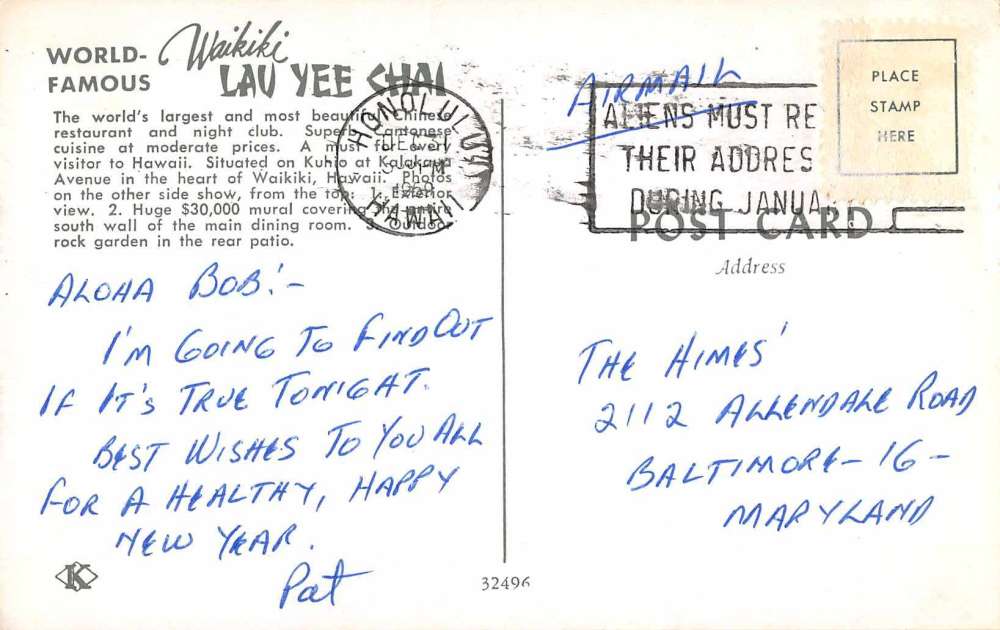 WORLD-
FAMOUS
Waikiki
LAU YEE CHAI
The world's largest and most beautiful Chinese
restaurant and night club. Superb Cantonese
cuisine at moderate prices. A must for every
visitor to Hawaii. Situated on Kuhio at Kalakaua
Avenue in the heart of Waikiki, Hawaii. Photos
on the other side show, from the top: 1. Exterior
view. 2. Huge $30,000 mural covering the entire
south wall of the main dining room. 3. Outdoor
rock garden in the rear patio.
HONOLULU
DEC 31
HAWAII
AIRMAIL
ALIENS MUST RE
THEIR ADDRES
DURING JANUA
PLACE
STAMP
HERE
POST CARD
Address
ALOHA BOB!-
I'M GOING TO FIND OUT
IF IT'S TRUE TONIGHT.
BEST WISHES TO YOU ALL
FOR A HEALTHY, HAPPY
NEW YEAR.
Pat
THE HIMES'
2112 ALLENDALE ROAD
BALTIMORE-16-
MARYLAND
K
32496